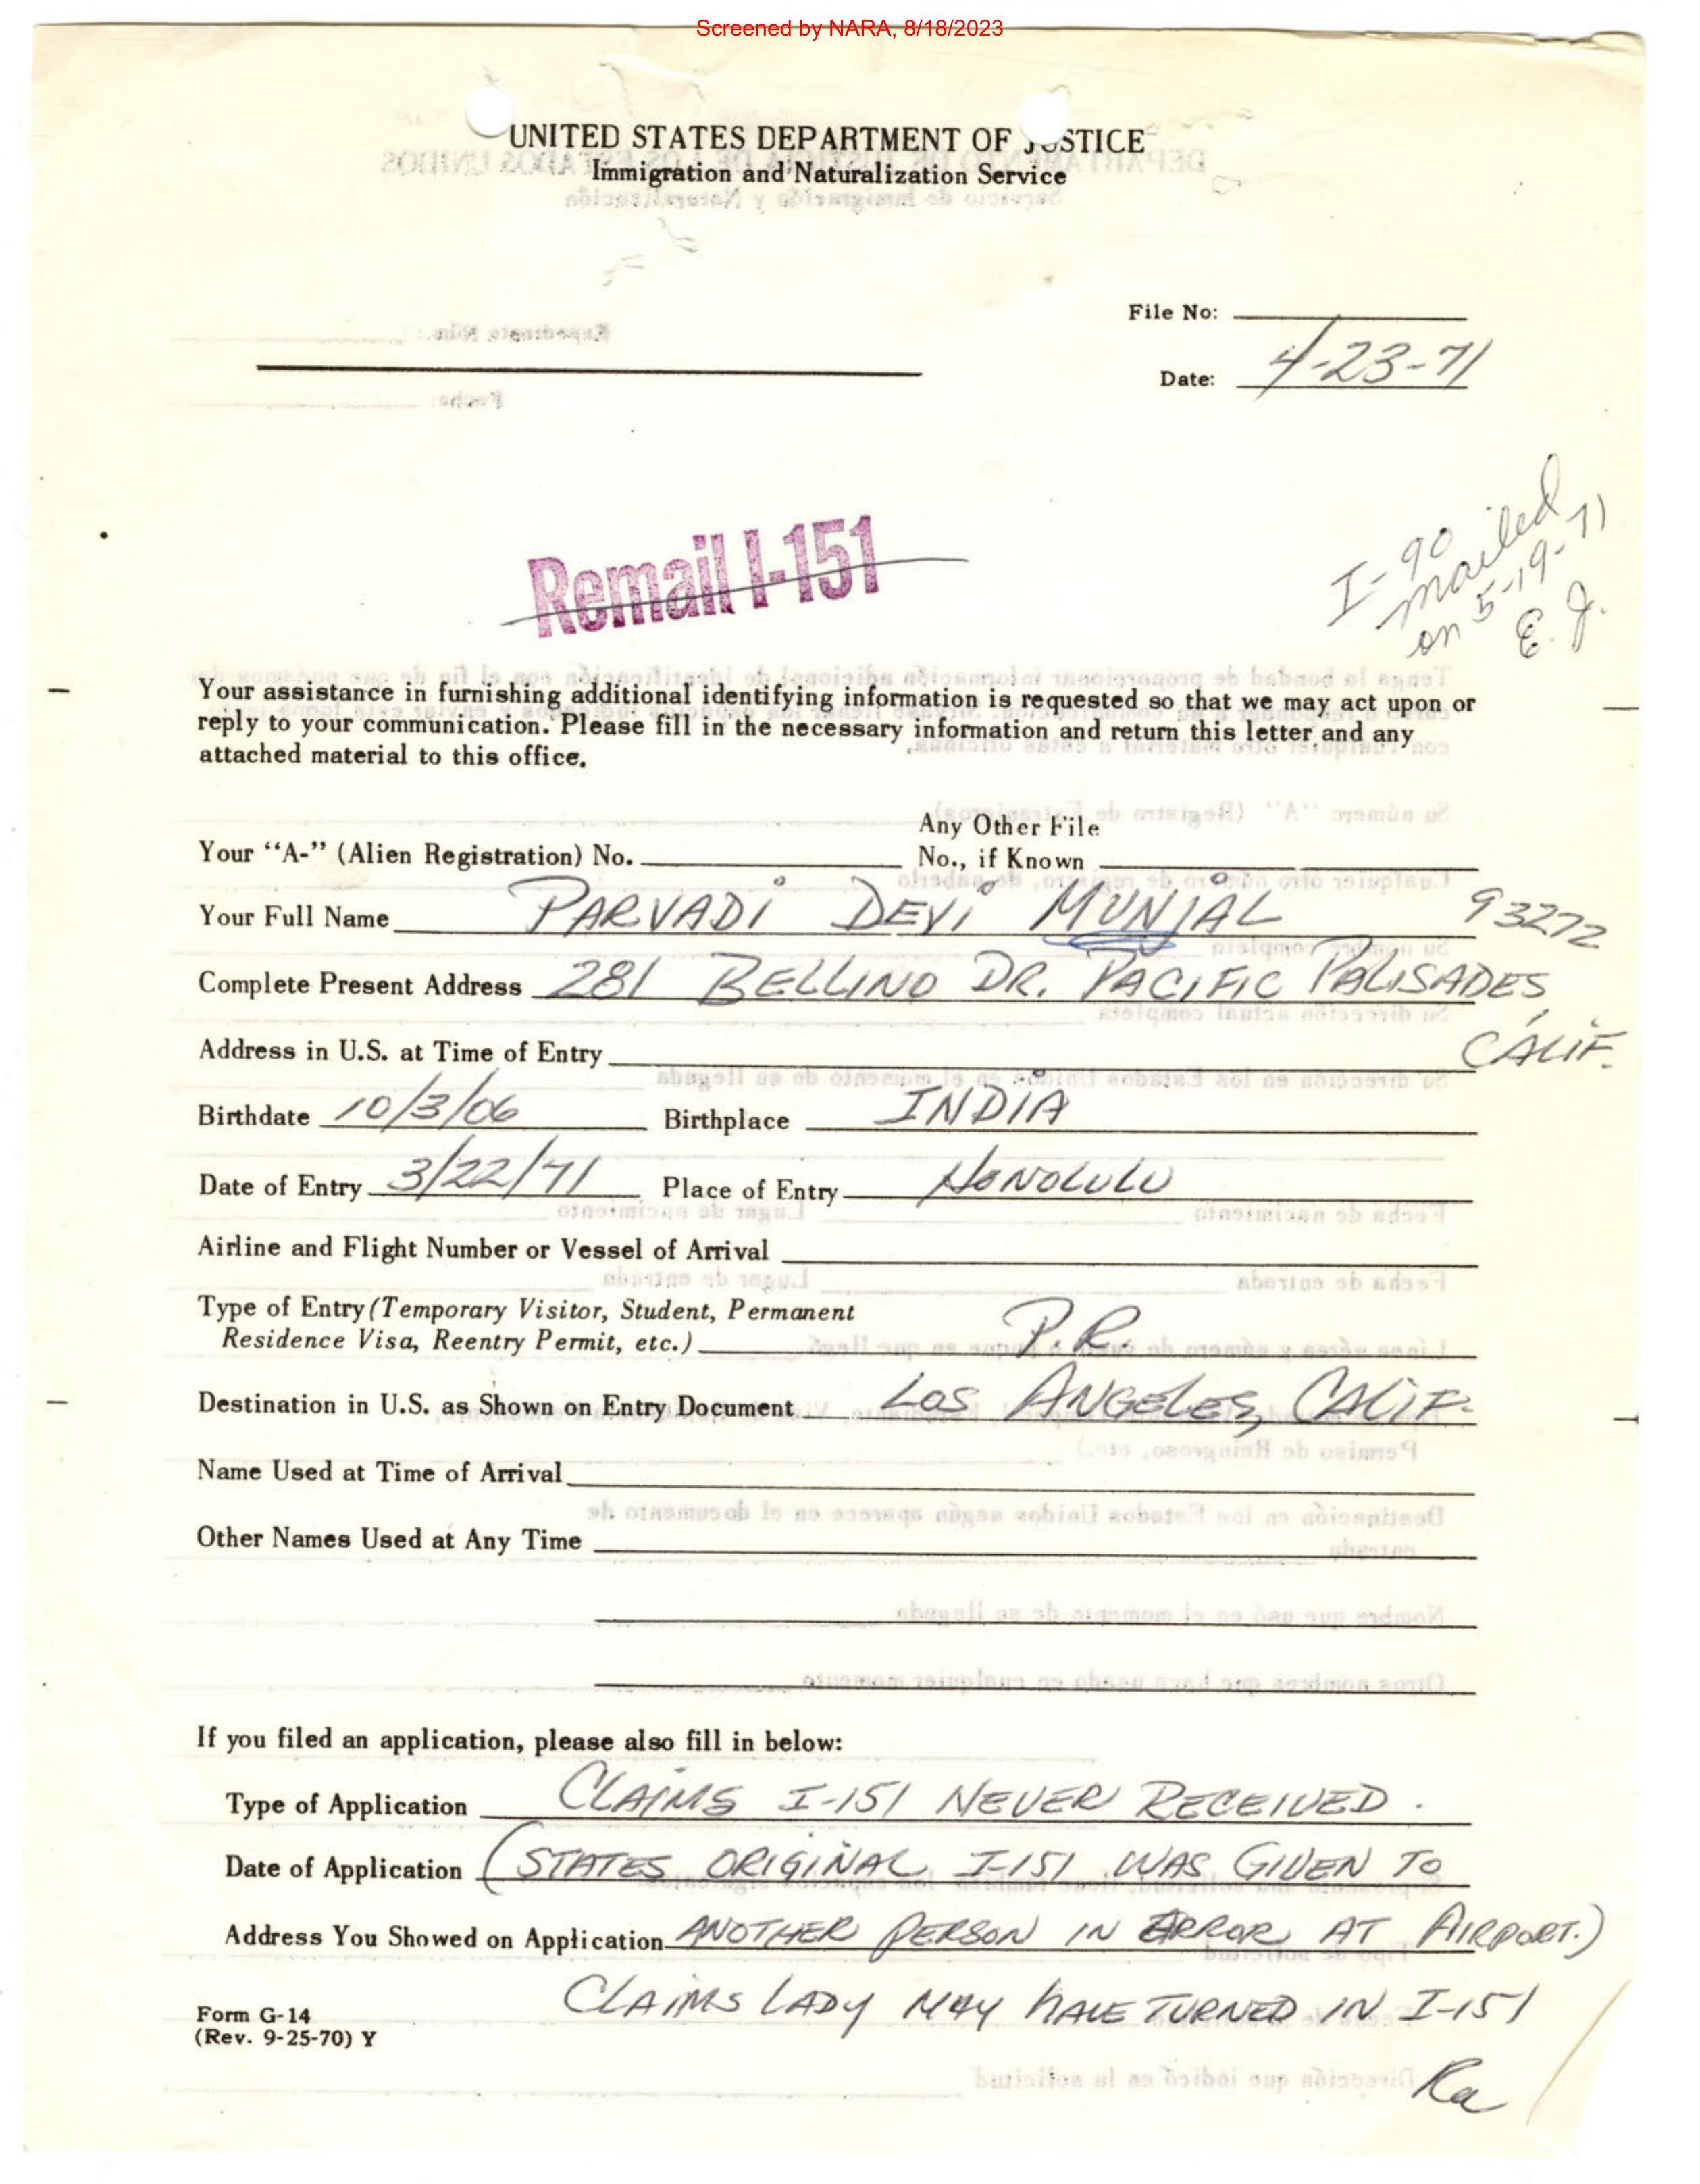 Screened by NARA, 8/18/2023
UNITED STATES DEPARTMENT OF JUSTICE
Immigration and Naturalization Service
File No:
Date: 4-23-71
Remail I-151
I-90
mailed
on 5-19-71
E. J.
Your assistance in furnishing additional identifying information is requested so that we may act upon or
reply to your communication. Please fill in the necessary information and return this letter and any
attached material to this office.
Your “A-” (Alien Registration) No. Any Other File
No., if Known
Your Full Name PARVADI DEVI MUNJAL 93272
Complete Present Address 281 BELLINO DR. PACIFIC PALISADES,
CALIF.
Address in U.S. at Time of Entry
Birthdate 10/3/06 Birthplace INDIA
Date of Entry 3/22/71 Place of Entry HONOLULU
Airline and Flight Number or Vessel of Arrival
Type of Entry (Temporary Visitor, Student, Permanent
Residence Visa, Reentry Permit, etc.) P.R.
Destination in U.S. as Shown on Entry Document LOS ANGELES, CALIF.
Name Used at Time of Arrival
Other Names Used at Any Time
If you filed an application, please also fill in below:
Type of Application CLAIMS I-151 NEVER RECEIVED.
Date of Application (STATES ORIGINAL I-151 WAS GIVEN TO
Address You Showed on Application ANOTHER PERSON IN ERROR AT AIRPORT.)
CLAIMS LADY MAY HAVE TURNED IN I-151
Form G-14
(Rev. 9-25-70) Y
Ra